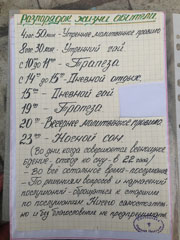 Распорядок жизни обители
4 час 50 мин - Утреннее молитвенное правило
8 час 30 мин - Утренний чай
с 10 до 11⁰⁰ - Трапеза
с 14⁰⁰ до 15⁰⁰ - Дневной отдых.
15⁰⁰ - Дневной чай
19⁰⁰ - Трапеза
20⁰⁰ - Вечернее молитвенное правило
23⁰⁰ - Ночной сон
(Во дни когда совершается всенощное
бдение - отход ко сну - в 22 час)
- Во все остальное время - послушания
- По решению вопросов и нареканий
послушаний - обращаться к старшим
по послушаниям. Ничего самостоятельно
и без благословения не предпринимать